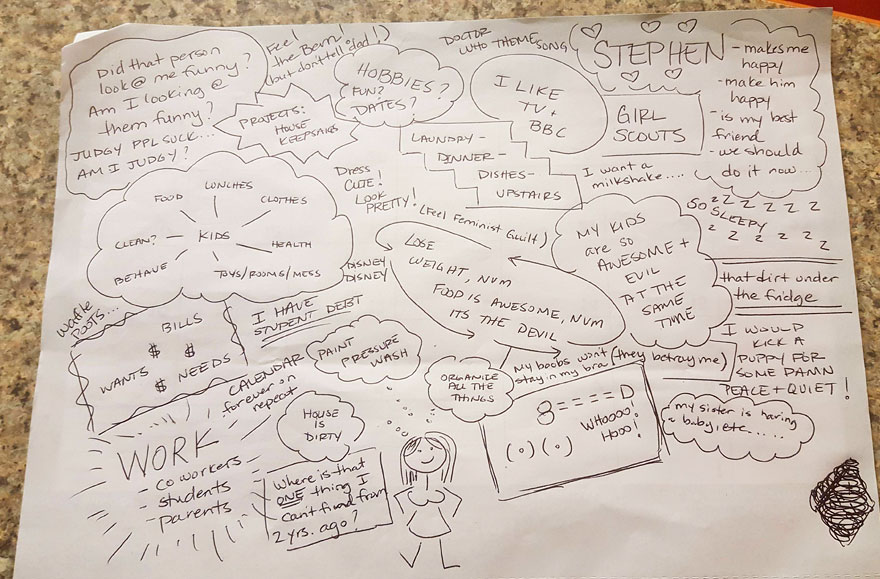 Did that person
look @ me funny?
Am I looking @
them funny?
JUDGY PPL SUCK...
AM I JUDGY?
Feel
the Bern!
(but don't tell dad!)
PROJECTS:
HOUSE
KEEPSAKES
HOBBIES?
FUN?
DATES?
DOCTOR
WHO THEME SONG
I LIKE
TV +
BBC
STEPHEN
- makes me
happy
- make him
happy
- is my best
friend
- we should
do it now...
GIRL
SCOUTS
LAUNDRY -
DINNER -
DISHES -
UPSTAIRS
I want a
milkshake....
Dress
CUTE!
LOOK
PRETTY!
(Feel Feminist Guilt)
FOOD
LUNCHES
CLOTHES
CLEAN?
KIDS
HEALTH
BEHAVE
TOYS/ROOMS/MESS
DISNEY
DISNEY
LOSE
WEIGHT, NVM
FOOD IS AWESOME, NVM
ITS THE DEVIL
MY KIDS
are so
AWESOME +
EVIL
AT THE
SAME
TIME
SO
SLEEPY
z z z z z z
z z z z z z
that dirt under
the fridge
waffle
ROOTS...
BILLS
$ $
WANTS $ NEEDS
I HAVE
STUDENT DEBT
CALENDAR
forever on
repeat
PAINT
PRESSURE
WASH
ORGANIZE
ALL THE
THINGS
My boobs won't (they betray me)
stay in my bra
I WOULD
KICK A
PUPPY FOR
SOME DAMN
PEACE + QUIET!
8====D
WHOOOO!
HOOO!
(o)(o)
my sister is having
a baby, etc......
HOUSE
IS
DIRTY
WORK
- co workers
- students
- parents
Where is that
ONE thing I
can't find from
2 yrs. ago?